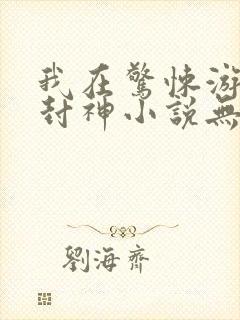 我在驚悚游
封神小說無
劉海齊